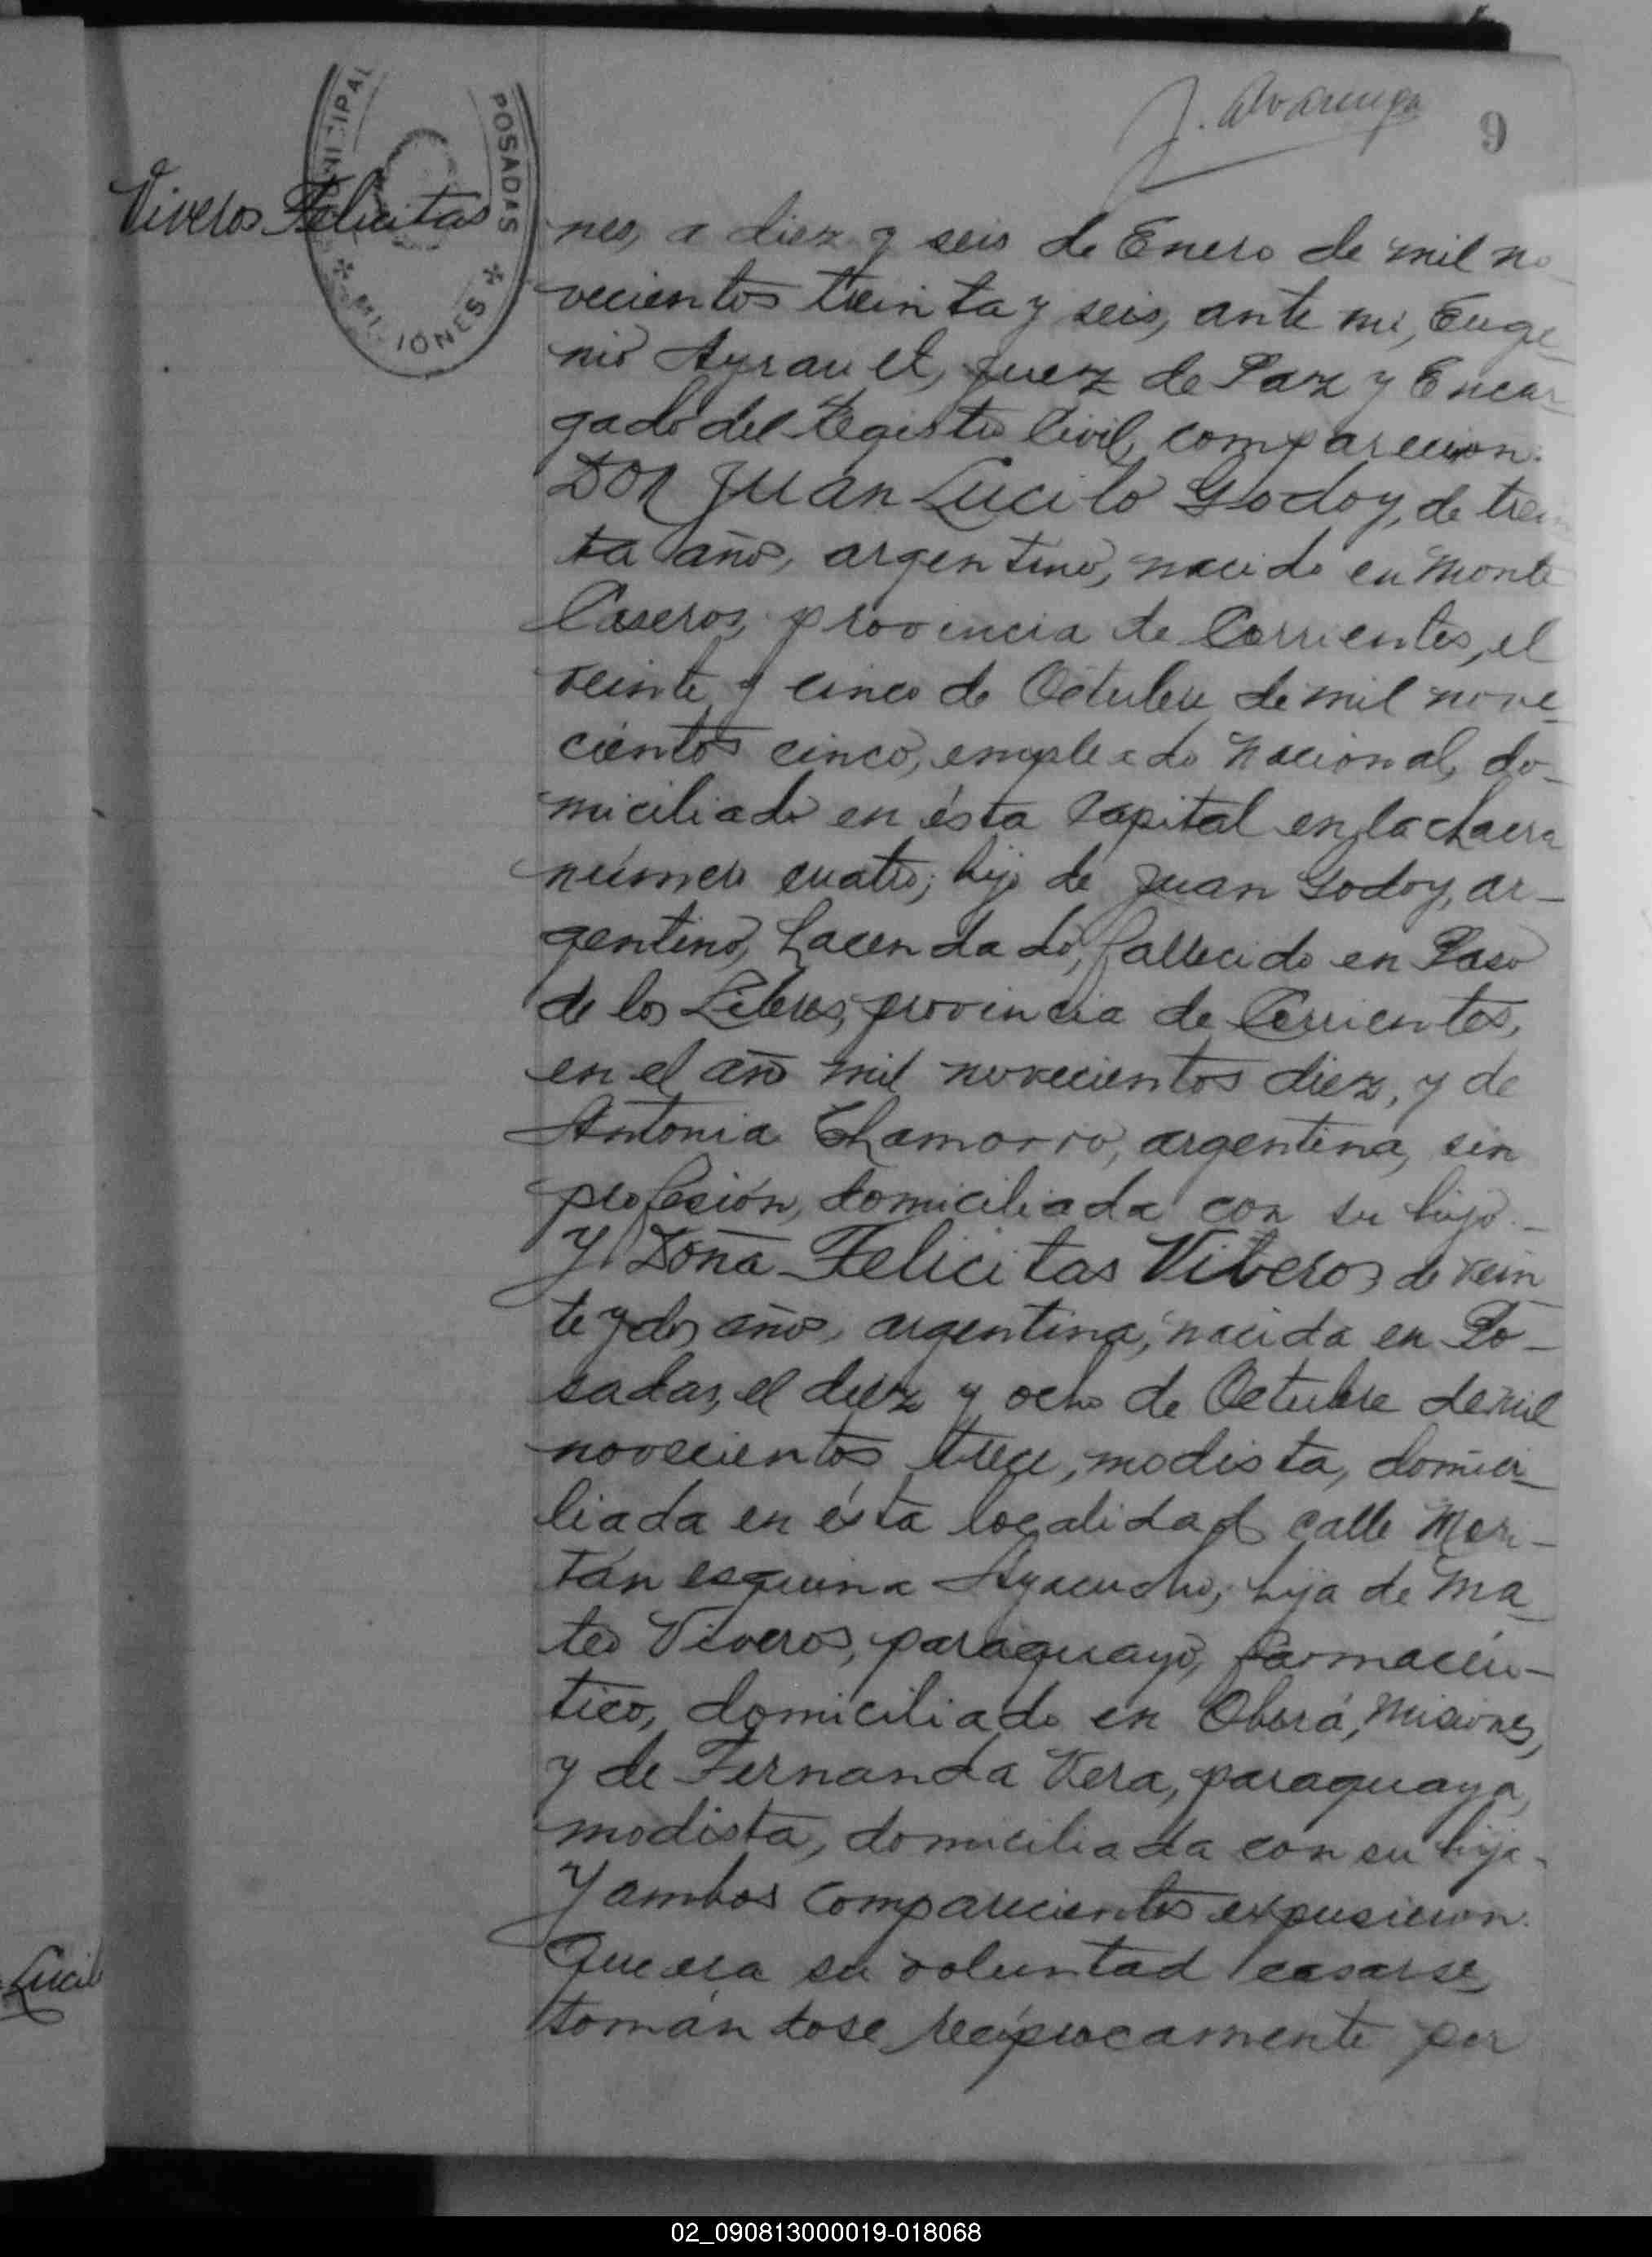 J. Alvarenga
9
MUNICIPAL
POSADAS
* MISIONES *
Viveros Felicitas
nes, a diez y seis de Enero de mil no
vecientos treinta y seis, ante mi, Euge-
nio Ayrault, Juez de Paz y Encar-
gado del Registro Civil, comparecieron:
Don Juan Lucilo Godoy, de trein
ta años, argentino, nacido en Monte
Caseros, provincia de Corrientes, el
veinte y cinco de Octubre de mil nove-
cientos cinco, empleado nacional, do-
miciliado en ésta Capital en la chacra
número cuatro; hijo de Juan Godoy, ar-
gentino, hacendado, fallecido en Paso
de los Libres, provincia de Corrientes,
en el año mil novecientos diez, y de
Antonia Chamorro, argentina, sin
profesión, domiciliada con su hijo.-
Y Doña Felicitas Viveros de vein
te y dos años, argentina, nacida en Po-
sadas, el diez y ocho de Octubre de mil
novecientos trece, modista, domici-
liada en ésta localidad calle
esquina Ayacucho; hija de Ma-
teo Viveros, paraguayo, farmacéu-
tico, domiciliado en Oberá, Misiones,
y de Fernanda Vera, paraguaya,
modista, domiciliada con su hija.
Y ambos comparecientes expusieron:
Que era su voluntad casarse,
tomándose recíprocamente por
Lucil
02_090813000019-018068